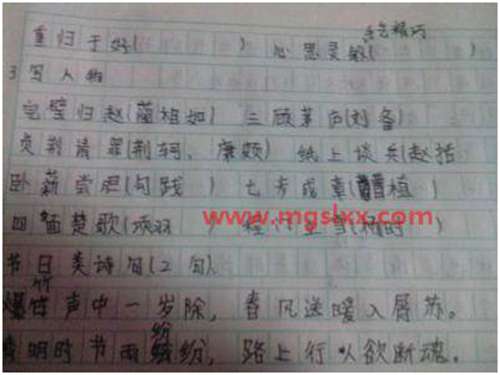 手舌精巧
重归于好( ) 心思灵敏( )
3写人物
完璧归赵(蔺相如) 三顾茅庐(刘备)
负荆请罪(荆轲、廉颇) 纸上谈兵(赵括
卧薪尝胆(句践) 七步成章(曹植)
www.mgslxx.com
四面楚歌(项羽) 程门立雪(杨时)
节日美诗句(2句)
竹
爆竹声中一岁除,春风送暖入屠苏。
纷
清明时节雨纷纷,路上行人欲断魂。